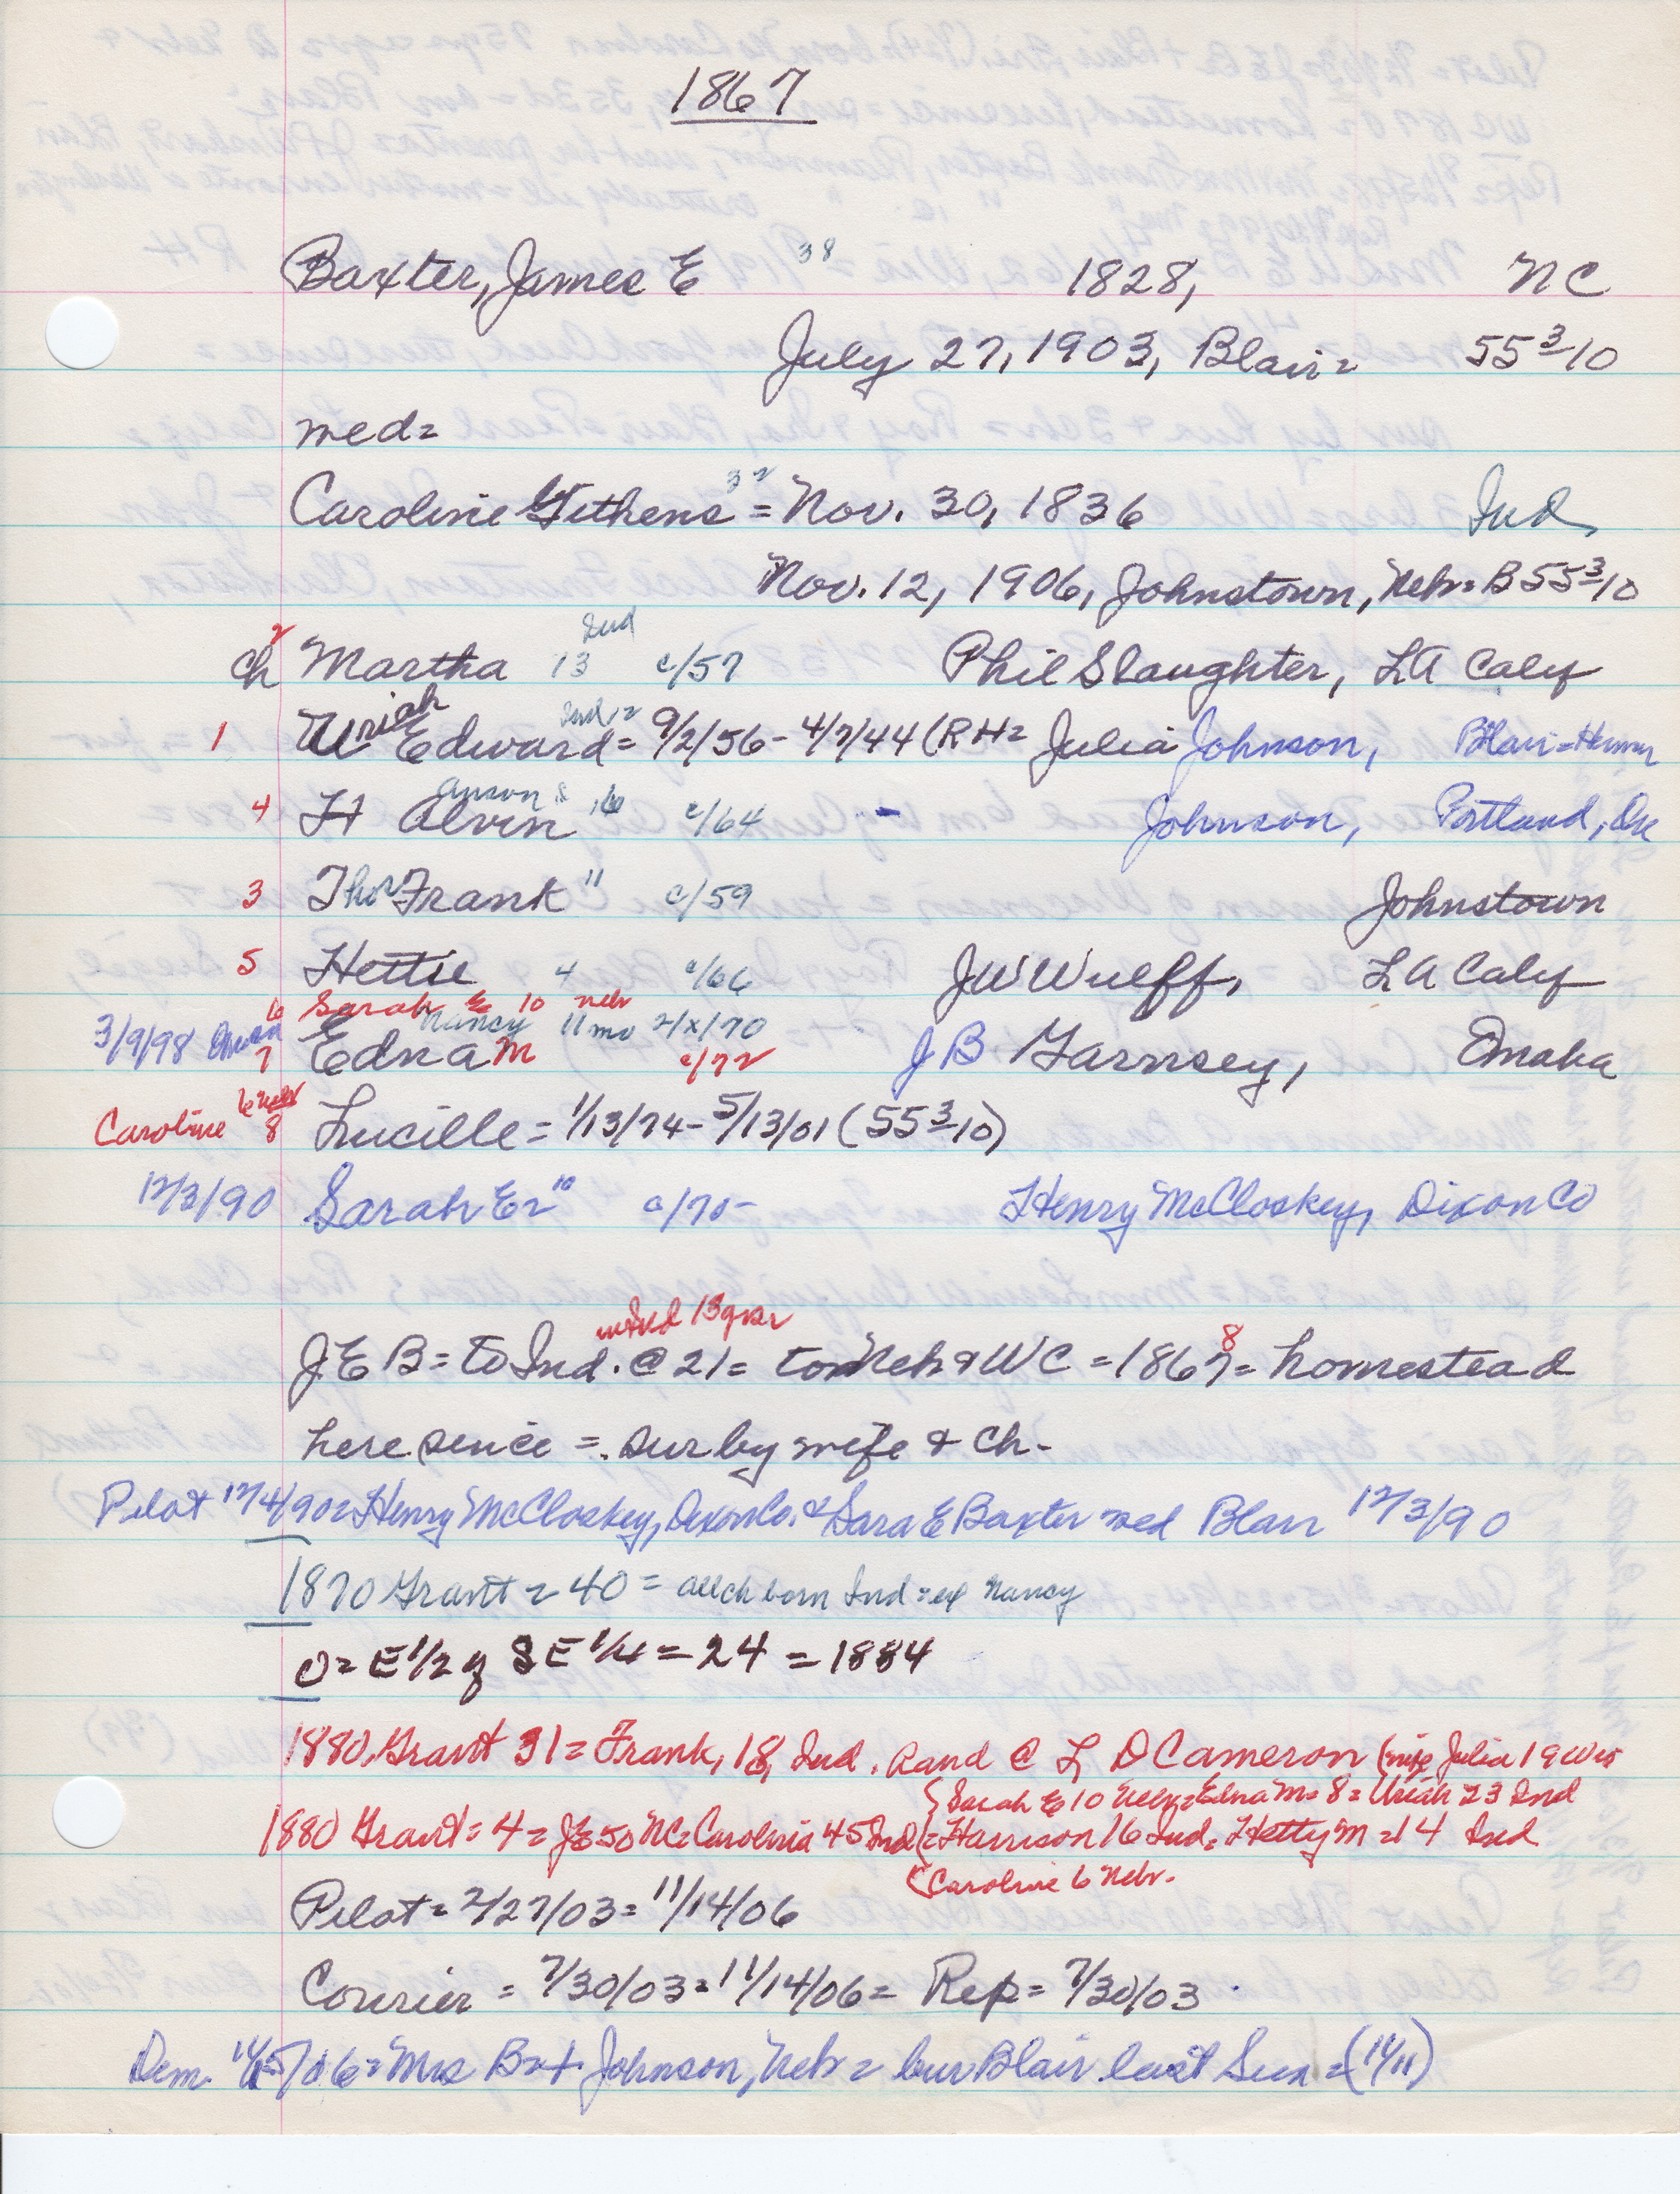 1867
Baxter, James E 38 1828, NC
July 27, 1903, Blair= 55 3/10
med=
Caroline Githens 32 = Nov. 30, 1836 Ind
Nov. 12, 1906, Johnstown, Nebr= B 55 3/10
Ind
ch 2 Martha 13 c/57 Phil Slaughter, LA Calif
1 Uriah Edward= Ind = 9/2/56 - 4/7/44 (RH= Julia Johnson, Blair=Herman
4 H Alvin Anson 16 c/64 - Johnson, Portland, Ore
3 Thos Frank 11 c/59 Johnstown
5 Hettie 4 c/66 JW Wulff, LA Calif
6 Sarah E 10 Neb
3/9/98 Omaha Nancy 11 mo 2/x/70
7 Edna M c/72 J B Garnsey, Omaha
Caroline 6 Nebr 8 Lucille = 1/13/74 - 5/13/01 (55 3/10)
12/3/90 Sarah E= 10 c/70- Henry McCloskey, Dixon Co
in Ind 13 yrs
J E B = to Ind. @ 21 = to Neb & WC = 1867 8 = homestead
here since = sur by wife & ch-
Pilot 12/4/90= Henry McCloskey, Dixon Co. & Sara E Baxter med Blair 12/3/90
1870 Grant = 40 = all ch born Ind = ex Nancy
O= E 1/2 of SE 1/4 = 24 = 1884
1880 Grant 31 = Frank, 18, Ind. @ L D Cameron (wife Julia 19 Wis
{Sarah E 10 Neb= Edna M= 8 = Uriah 23 Ind
1880 Grant = 4 = JE 50 NC= Carolina 45 Ind (= Harrison 16 Ind= Hetty M = 14 Ind
(Caroline 6 Nebr.
Pilot = 2/27/03 = 11/14/06
Courier = 7/30/03 = 11/14/06 = Rep = 7/30/03
Dem. = Mrs Bxt Johnson, Neb = bur Blair last Sun = (11/11)